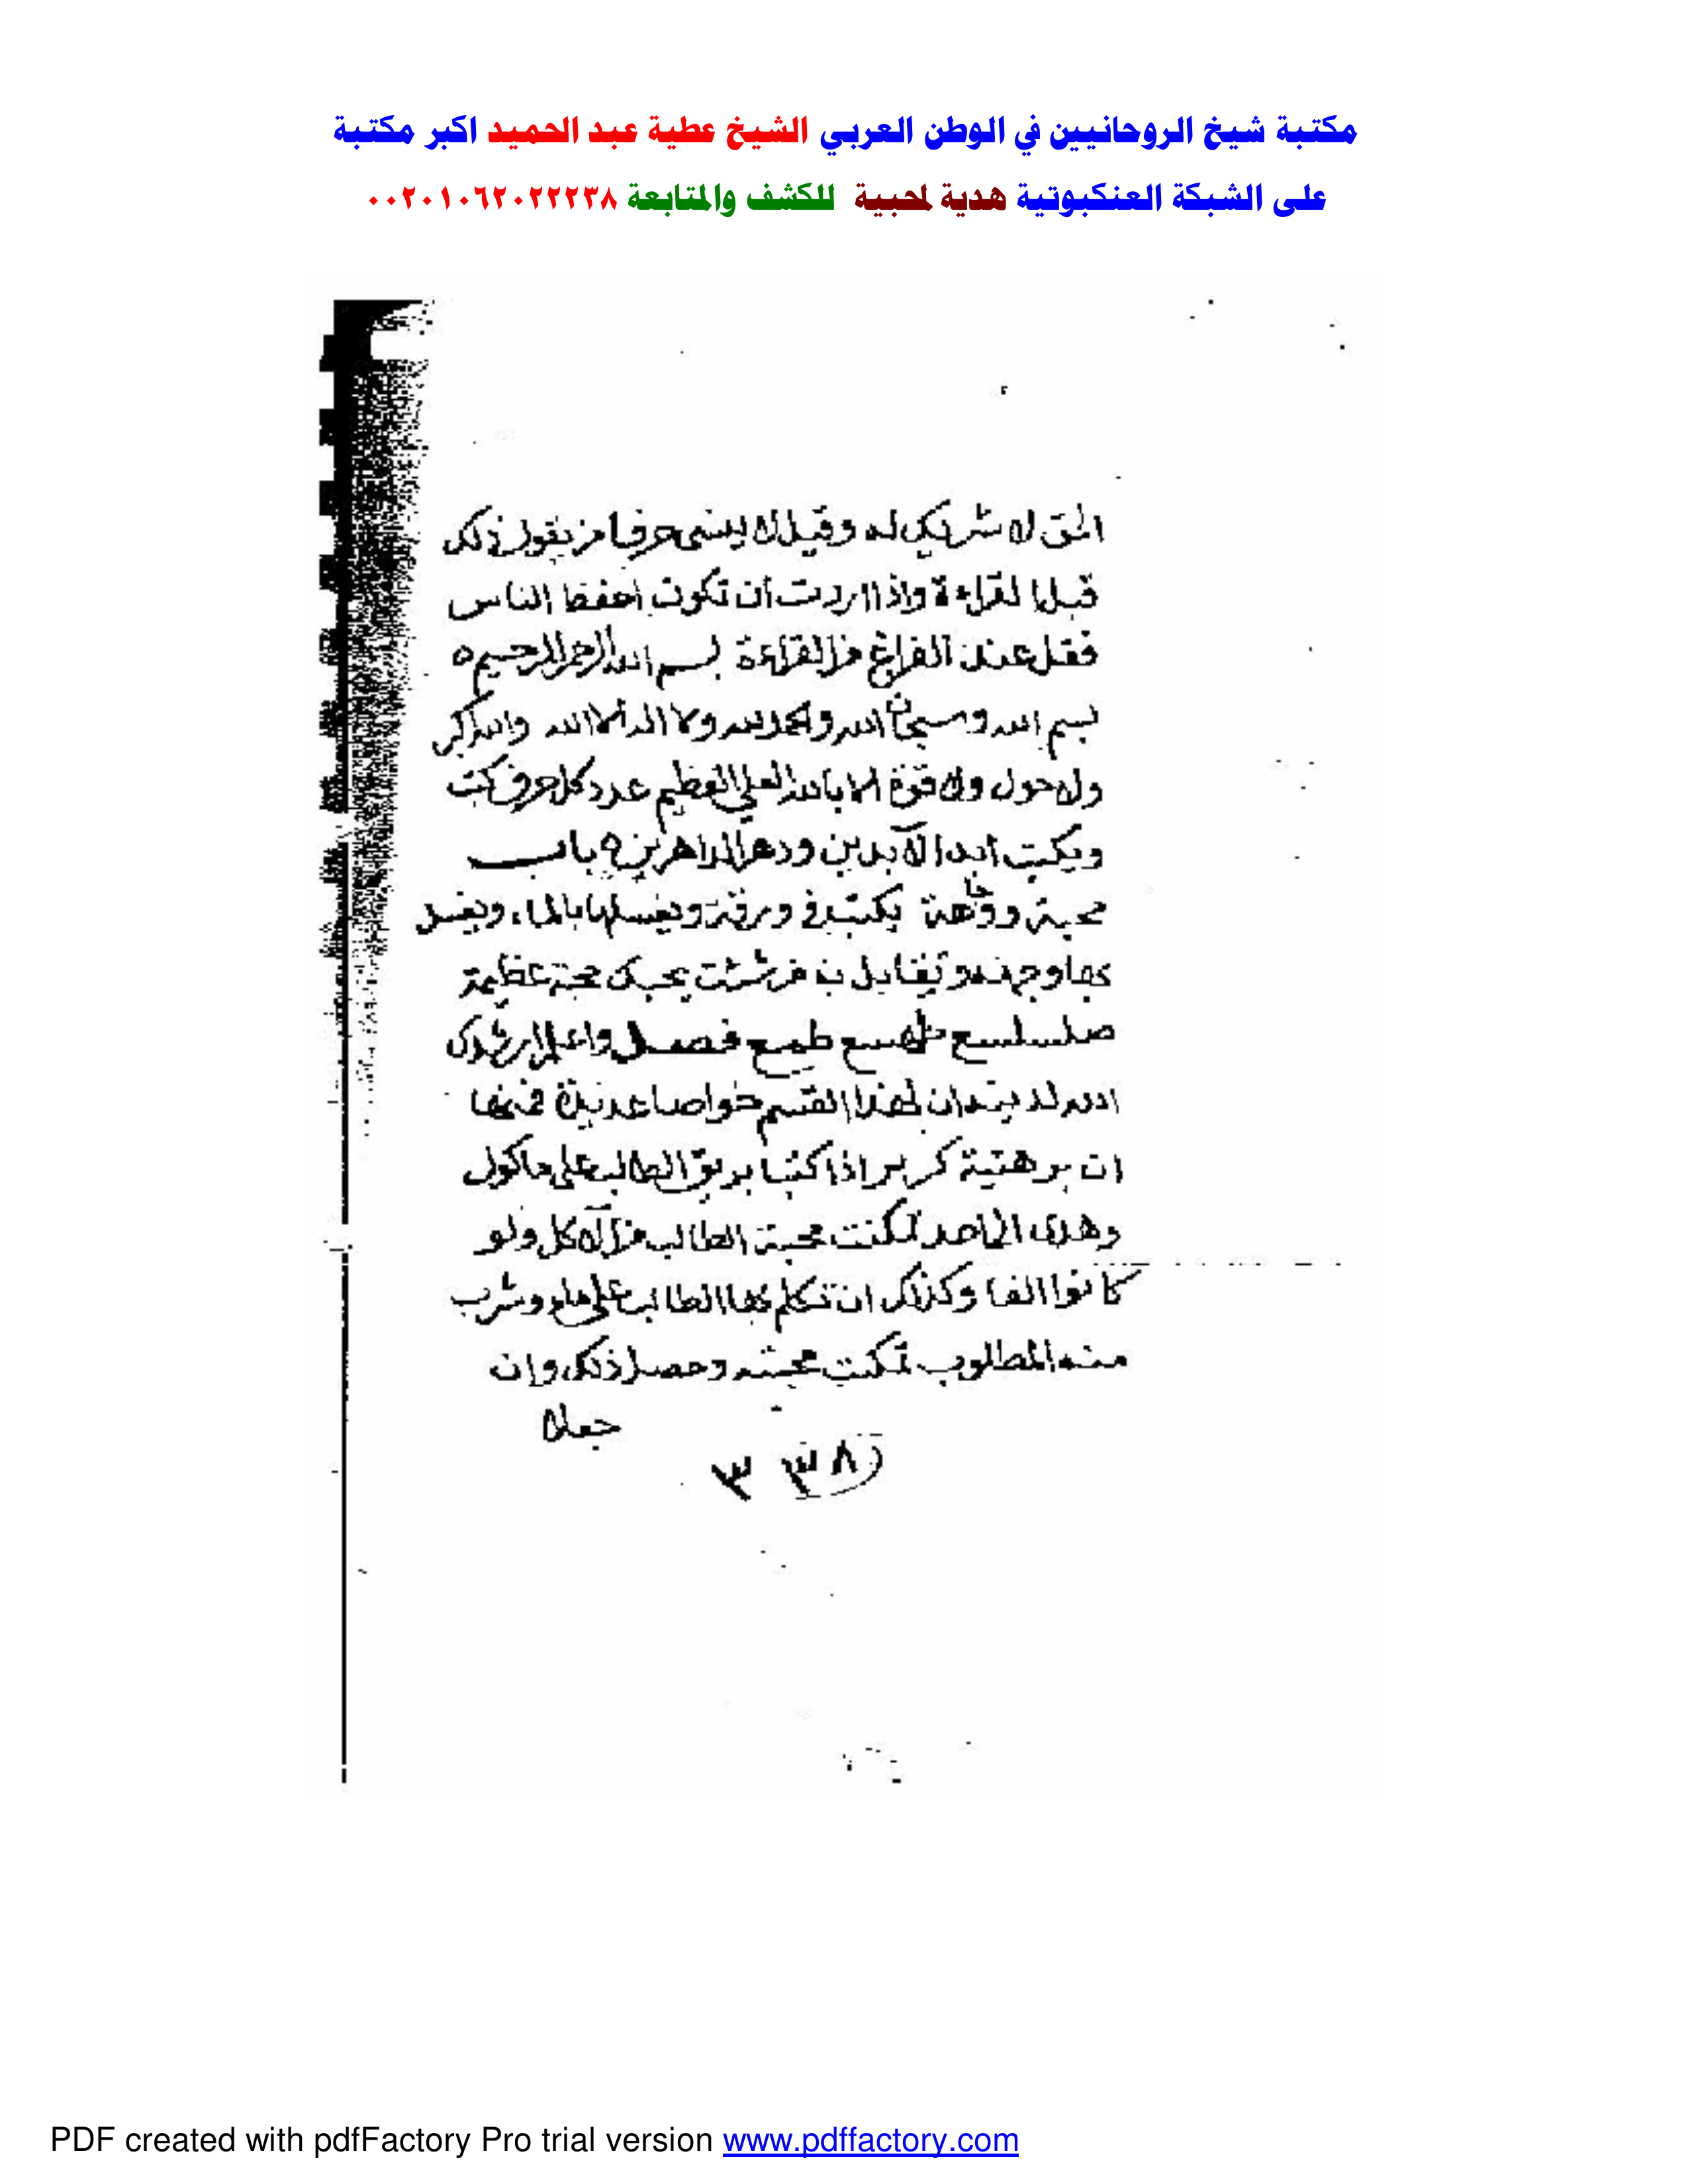 مكتبة شيخ الروحانيين في الوطن العربي الشيخ عطية عبد الحميد اكبر مكتبة
على الشبكة العنكبوتية هدية لمحبية للكشف والمتابعة ٠٠٢٠١٠٦٢٠٢٢٢٣٨
الحق لا شريك له وقيل لا ينسى حرفا من يقول ذلك
قبل القراءة واذا اردت أن تكون احفظ الناس
فقل عند الفراغ من القراءة بسم الله الرحمن الرحيم ه
بسم الله وسبحان الله والحمد لله ولا اله الا الله والله اكبر
ولا حول ولا قوة الا بالله العلي العظيم عدد كل حرف كتب
ويكتب أبدا الآبدين ودهر الداهرين ه باب
محبة ووجاهة يكتب في ورقة ويغسلها بالماء ويغسل
بها وجهه ويقابل به من شئت يحبك محبة عظيمة
طمع فصل واعلم ارشدك
الله ان لهذا القسم خواصا عديدة فمنها
ان برهتية كرير اذا كتبا بريق الطالب على ماكول
وهدى الى احد تمكنت محبة الطالب من الآكل ولو
كانوا الفا وكذلك ان تكلم بها الطالب على ماء وشرب
منه المطلوب تمكنت محبته وحصل ذلك وان
جعلا
٣٨ ٣
PDF created with pdfFactory Pro trial version www.pdffactory.com